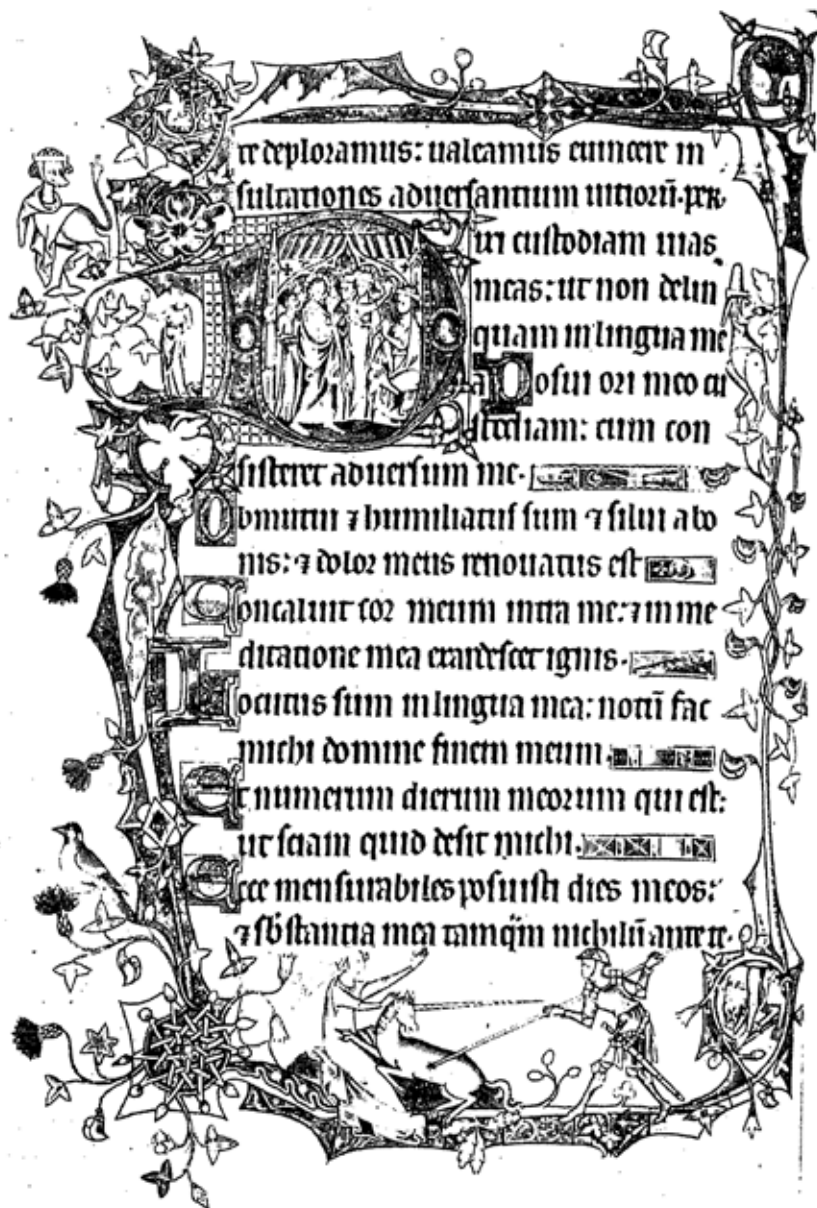 te deploramus: ualeamus euincere in
sultationes aduersantium uitiorū. per.
Dixi custodiam uias
meas: ut non delin
quam in lingua me
a Posui ori meo cu
stodiam: cum con
sisteret aduersum me.
Obmutui ⁊ humiliatus sum ⁊ silui a bo
nis: ⁊ dolor meus renouatus est
Concaluit cor meum intra me: ⁊ in me
ditatione mea exardescet ignis.
Locutus sum in lingua mea: notū fac
michi domine finem meum.
Et numerum dierum meorum qui est:
ut sciam quid desit michi.
Ecce mensurabiles posuisti dies meos:
⁊ sb̄stantia mea tamq̄m nichilū ante te.